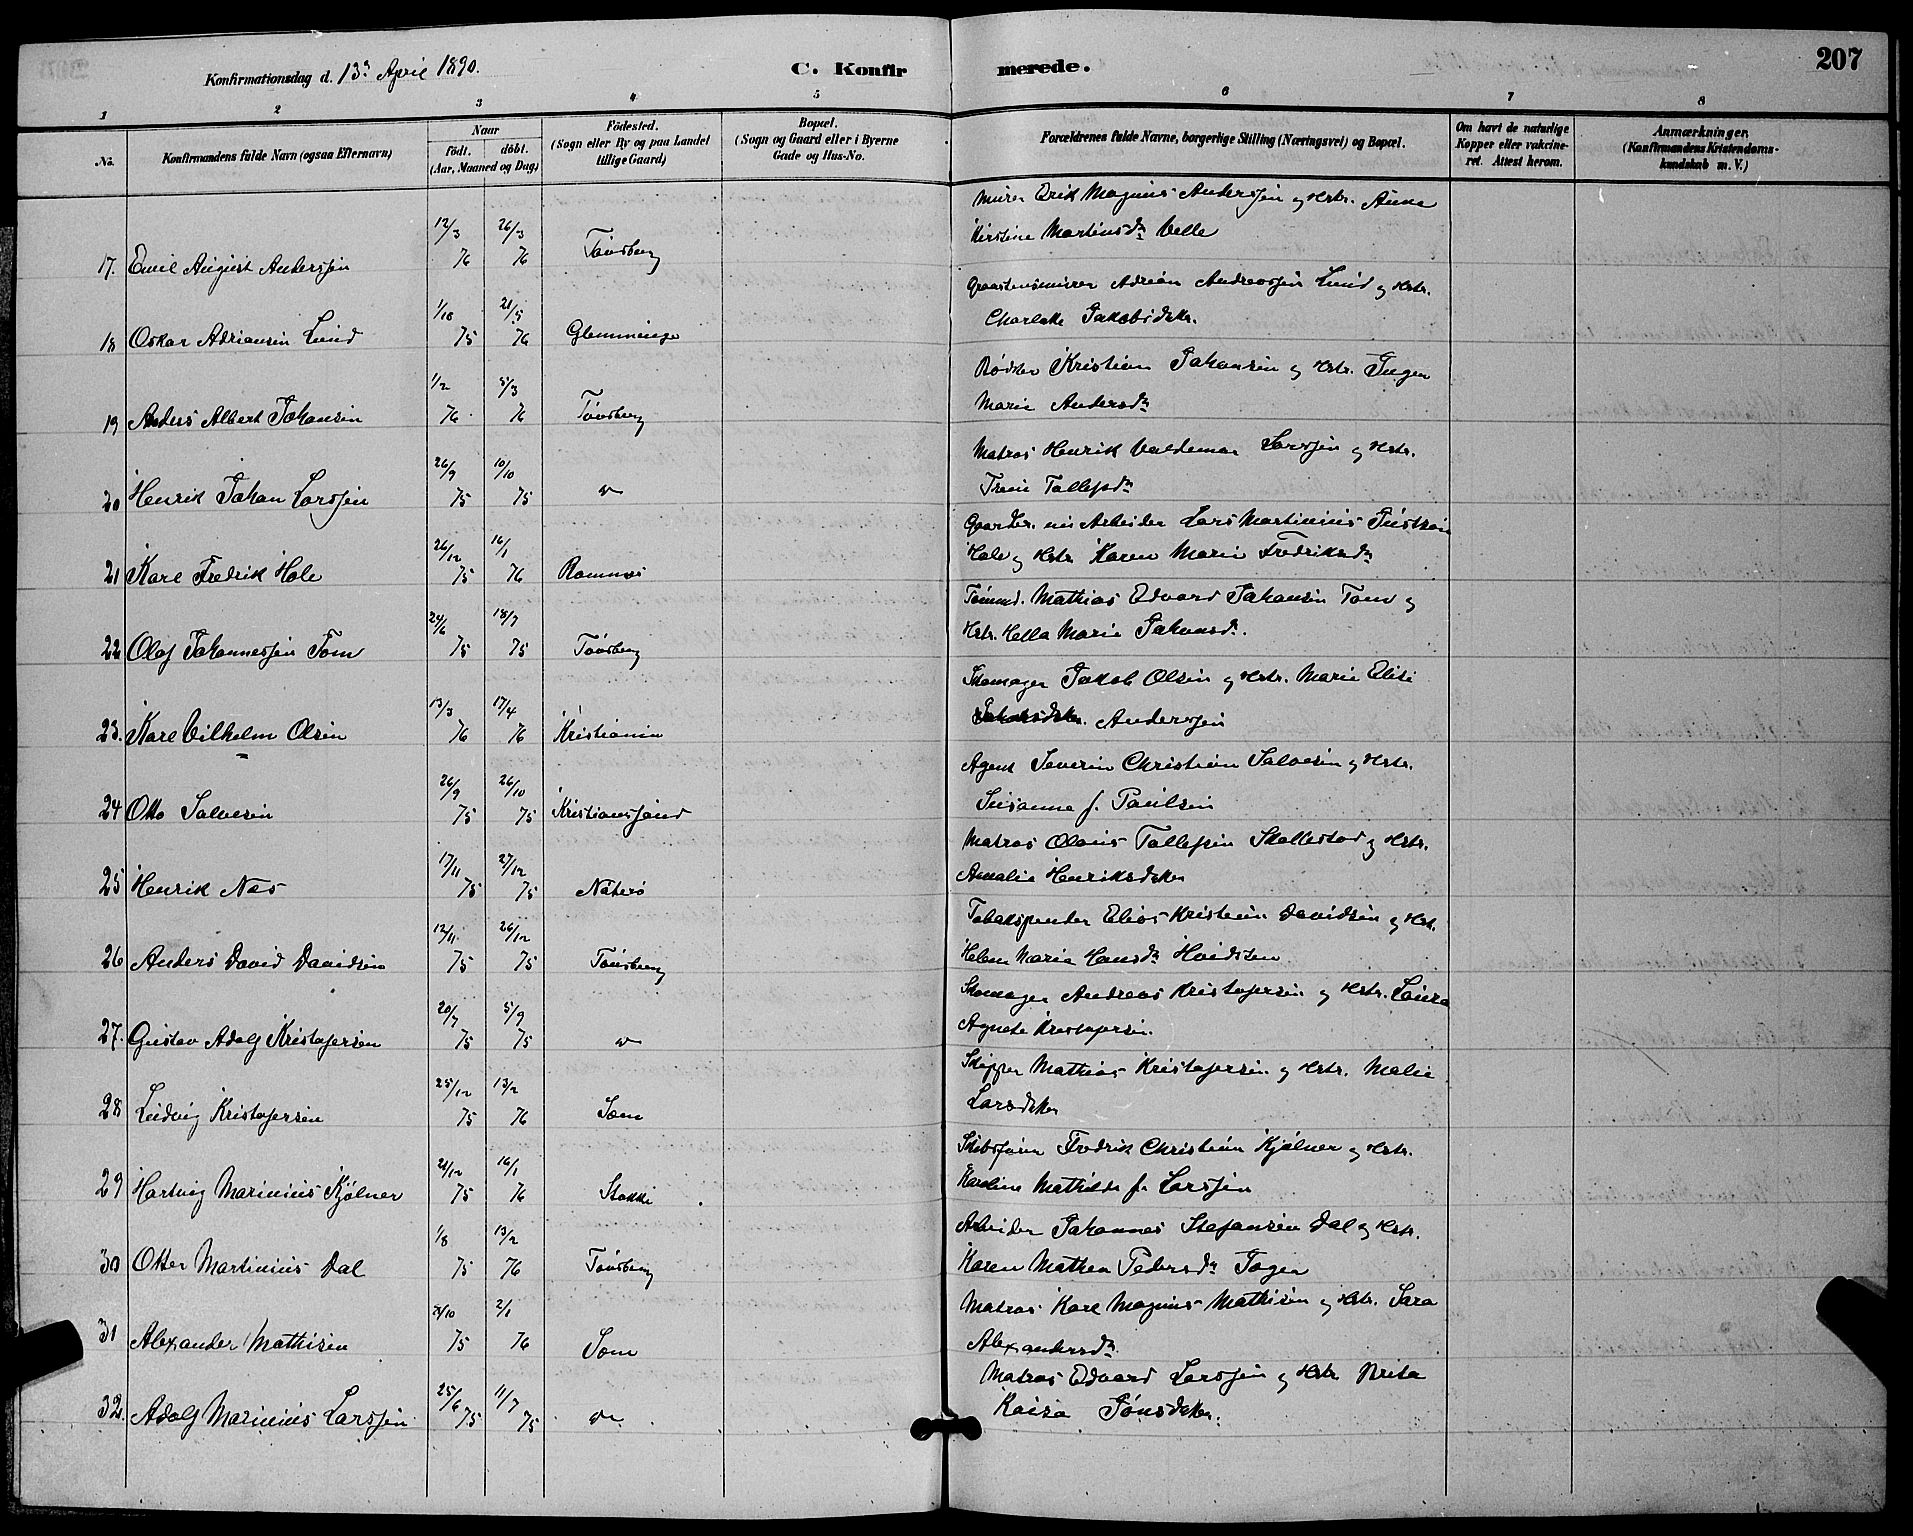 207
Konfirmationsdag d. 13de April 1890.
C. Konfir merede.
1 2 3 4 5 6 7 8
No. Konfirmandens fulde Navn (ogsaa Efternavn) Naar födt. döbt. (Aar, Maaned og Dag) Födested. (Sogn eller By og paa Landet tillige Gaard) Bopæl. (Sogn og Gaard eller i Byerne Gade og Hus-No. Forældrenes fulde Navne, borgerlige Stilling (Næringsvei) og Bopæl. Om havt de naturlige Kopper eller vakcineret. Attest herom. Anmærkninger. (Konfirmandens Kristendomskundskab m. V.)
Murer Erik Magnus Anderssen og Hstr. Anne
17. Emil August Anderssen 12/3 76 26/3 76 Tönsberg Kirstine Martinsdtr Velle
Graastensmurer Adrian Andreassen Lund og Hstr.
18 Oskar Adriansen Lund 1/10 75 21/5 76 Glemminge Charlotte Jakobsdtr.
Bödker Kristian Johansen og Hstr. Inger
19 Anders Albert Johansen 1/2 76 5/3 76 Tönsberg Marie Andersdtr
Matros Henrik Valdemar Larssen og Hstr.
20 Henrik Johan Larssen 26/9 75 10/10 75 " Trine Tollefsdtr
Gaardbr. nu Arbeider Lars Martinius
21 Karl Fredrik Hole 26/12 75 16/1 76 Ramnæs Hole og Hstr Karen Marie Fredriksdtr
Tömmd. Mathias Edvard Johansen Tom og
22 Olaf Johannessen Tom 24/6 75 18/7 75 Tönsberg Hstr. Hella Marie Johansdtr.
Skomager Jakob Olsen og Hstr. Marie Elise
23. Karl Vilhelm Olsen 13/3 76 17/4 76 Kristiania Anderssen
Agent Severin Christian Salvesen og Hstr.
24 Otto Salvesen 26/9 75 26/10 75 Kristianssand Susanne f. Paulsen
Matros Olaus Tollefsen Skallestad og Hstr.
25 Henrik Nes 17/11 75 27/12 75 Nöterö Amalie Henriksdtr
Tobakspinder Elias Kristian Davidsen og Hstr.
26 Anders David Davidsen 12/11 75 26/12 75 Tönsberg Helene Marie Hansdtr Hvidsten
Skomager Andreas Kristofersen og Hstr. Laura
27. Gustav Adolf Kristofersen 20/7 75 5/9 75 " Agnete Kristofersen.
Skipper Mathias Kristofersen og Hstr. Malie
28 Ludvig Kristofersen 25/12 75 13/2 76 Sem Larsdtr
Skibsförer Fredrik Christian Kjölner og Hstr.
29 Hartvig Marinius Kjölner 21/12 75 16/1 76 Stokke Karoline Mathilde f. Larssen
Arbeider Johannes Stefansen Dal og Hstr.
30 Otter Martinius Dal 1/8 75 13/2 76 Tönsberg Karen Mathea Pedersdtr
Matros Karl Magnus Mathisen og Hstr. Sara
31 Alexander Mathisen 75 2/1 76 Sem Alexandersdtr.
Matros Edvard Larssen og Hstr Brita
32. Adolf Marinius Larssen 25/6 75 11/7 75 " Kaisa Jonsdtr.